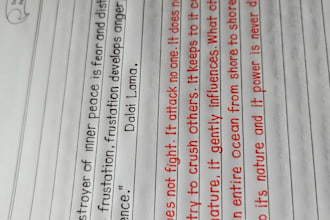 stroyer of inner peace is fear and dist
frustation, frustation develops anger
ence."
Dalai Lama.
oes not fight. It attack no one. It does no
try to crush others. It keeps to it co
nature, it gently influences. What ot
n entire ocean from shore to shore
o its nature and it power is never d